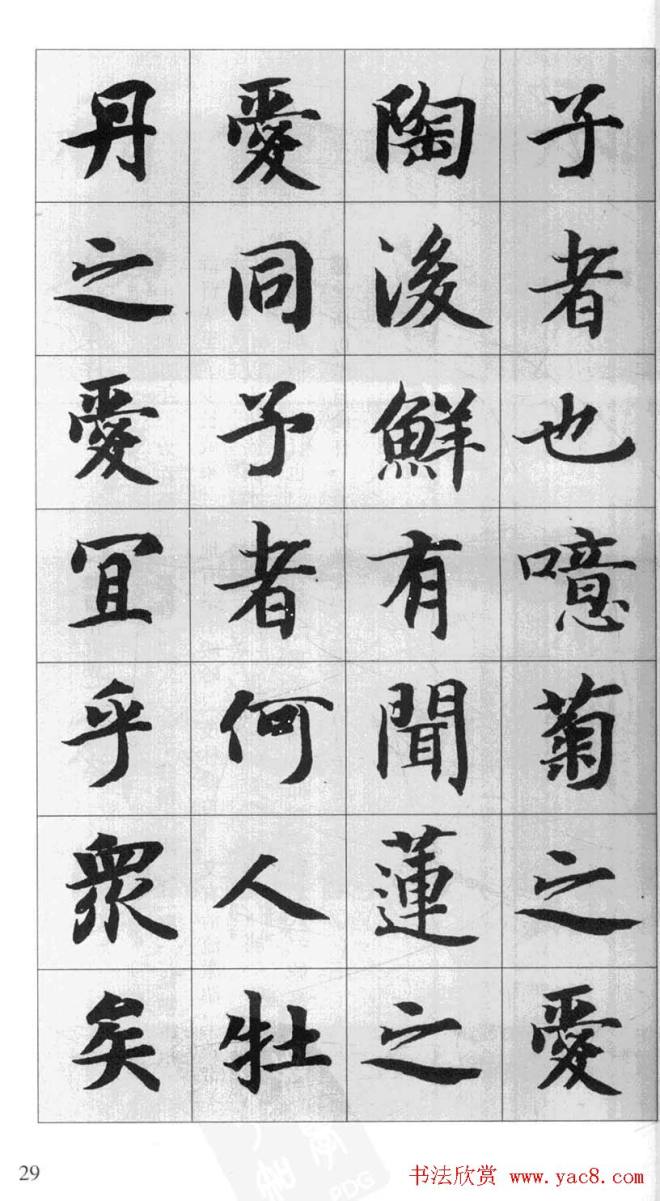 子者也噫菊之愛
陶後鮮有聞蓮之
愛同予者何人牡
丹之愛宜乎眾矣
29
书法欣赏 www.yac8.com